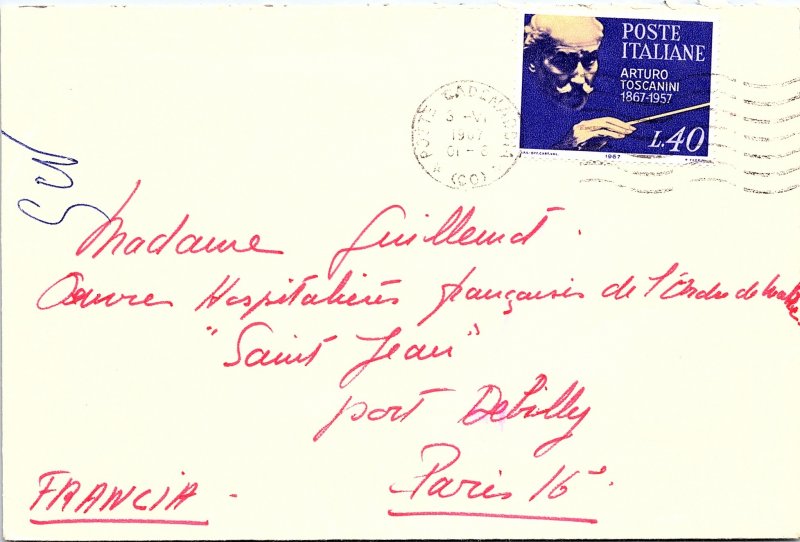 POSTE
ITALIANE
ARTURO
TOSCANINI
1867-1957
L.40
1967
POSTE CADENABBIA
3 -VI
1967
(CO)
Madame Guillemot.
Oeuvres Hospitalières françaises de l'Ordre de Malte.
"Saint Jean"
port Debilly
Paris 16e.
FRANCIA -